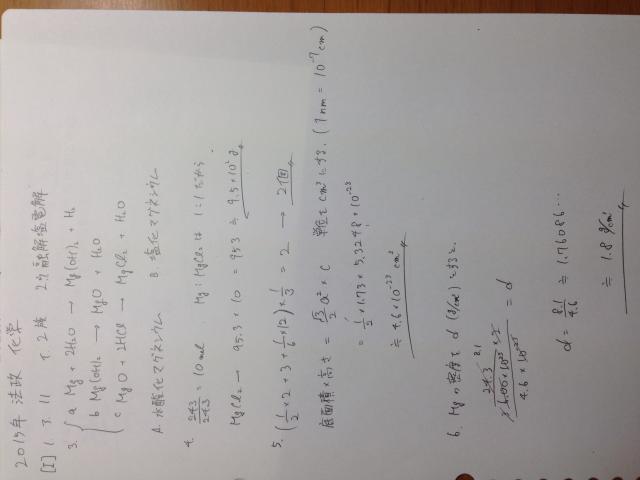 2015年 法政 化学
[I] 1. 3. 11 1. 2族 2ウ 融解塩電解
3. a Mg + 2H₂O → Mg(OH)₂ + H₂
b Mg(OH)₂ → MgO + H₂O
c MgO + 2HCl → MgCl₂ + H₂O
A. 水酸化マグネシウム B. 塩化マグネシウム
4. 243/24.3 = 10 mol. Mg : MgCl₂ は 1:1 だから
MgCl₂ → 95.3 × 10 = 953 ≒ 9.5×10² g
5. (1/2 × 2 + 3 + 1/6 × 12) × 1/3 = 2 → 2個
底面積×高さ = √3/2 a² × c 単位を cm³ にする. (1nm = 10⁻⁷ cm)
= 1/2 × 1.73 × 5.3248 × 10⁻²³
≒ 4.6 × 10⁻²³ cm³
6. Mg の密度を d (g/cm³) とすると.
24.3 8.1
4.6 × 10⁻²³ = d
d = 8.1/4.6 ≒ 1.76086...
≒ 1.8 g/cm³